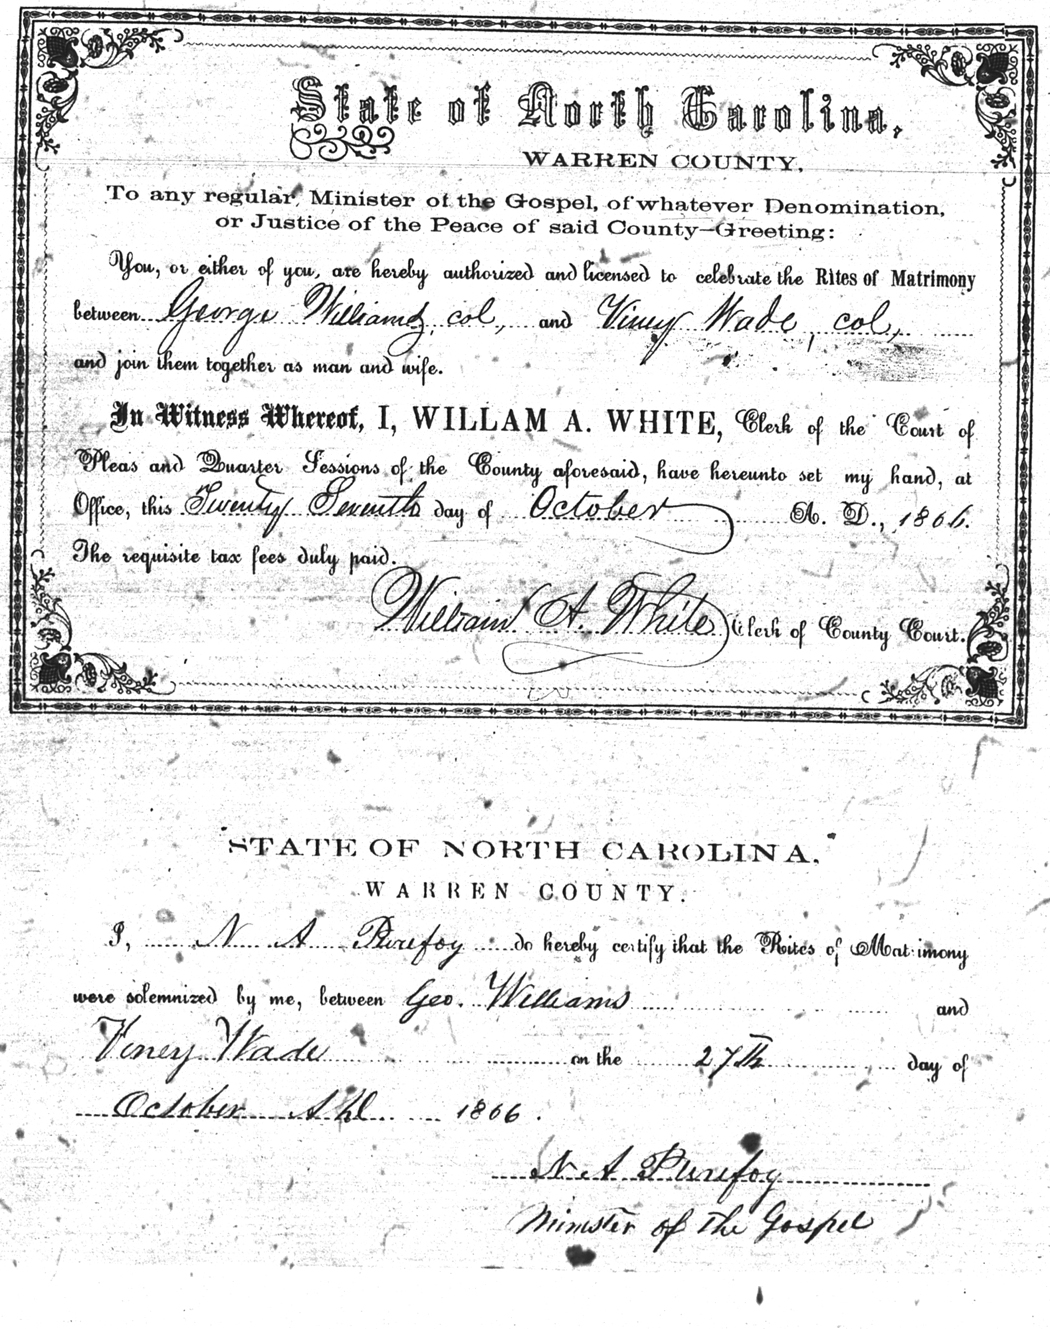 State of North Carolina,
WARREN COUNTY,
To any regular, Minister of the Gospel, of whatever Denomination,
or Justice of the Peace of said County—Greeting:
You, or either of you, are hereby authorized and licensed to celebrate the Rites of Matrimony
between George Williams col, and Viney Wade, col,
and join them together as man and wife.
In Witness Whereof, I, WILLAM A. WHITE, Clerk of the Court of
Pleas and Quarter Sessions of the County aforesaid, have hereunto set my hand, at
Office, this Twenty Seventh day of October A. D., 1866.
The requisite tax fees duly paid.
William A. White Clerk of County Court.
STATE OF NORTH CAROLINA,
WARREN COUNTY.
I, N A Purefoy do hereby certify that the Rites of Matrimony
were solemnized by me, between Geo. Williams and
Viney Wade on the 27th day of
October 1866.
N A Purefoy
Minister of the Gospel